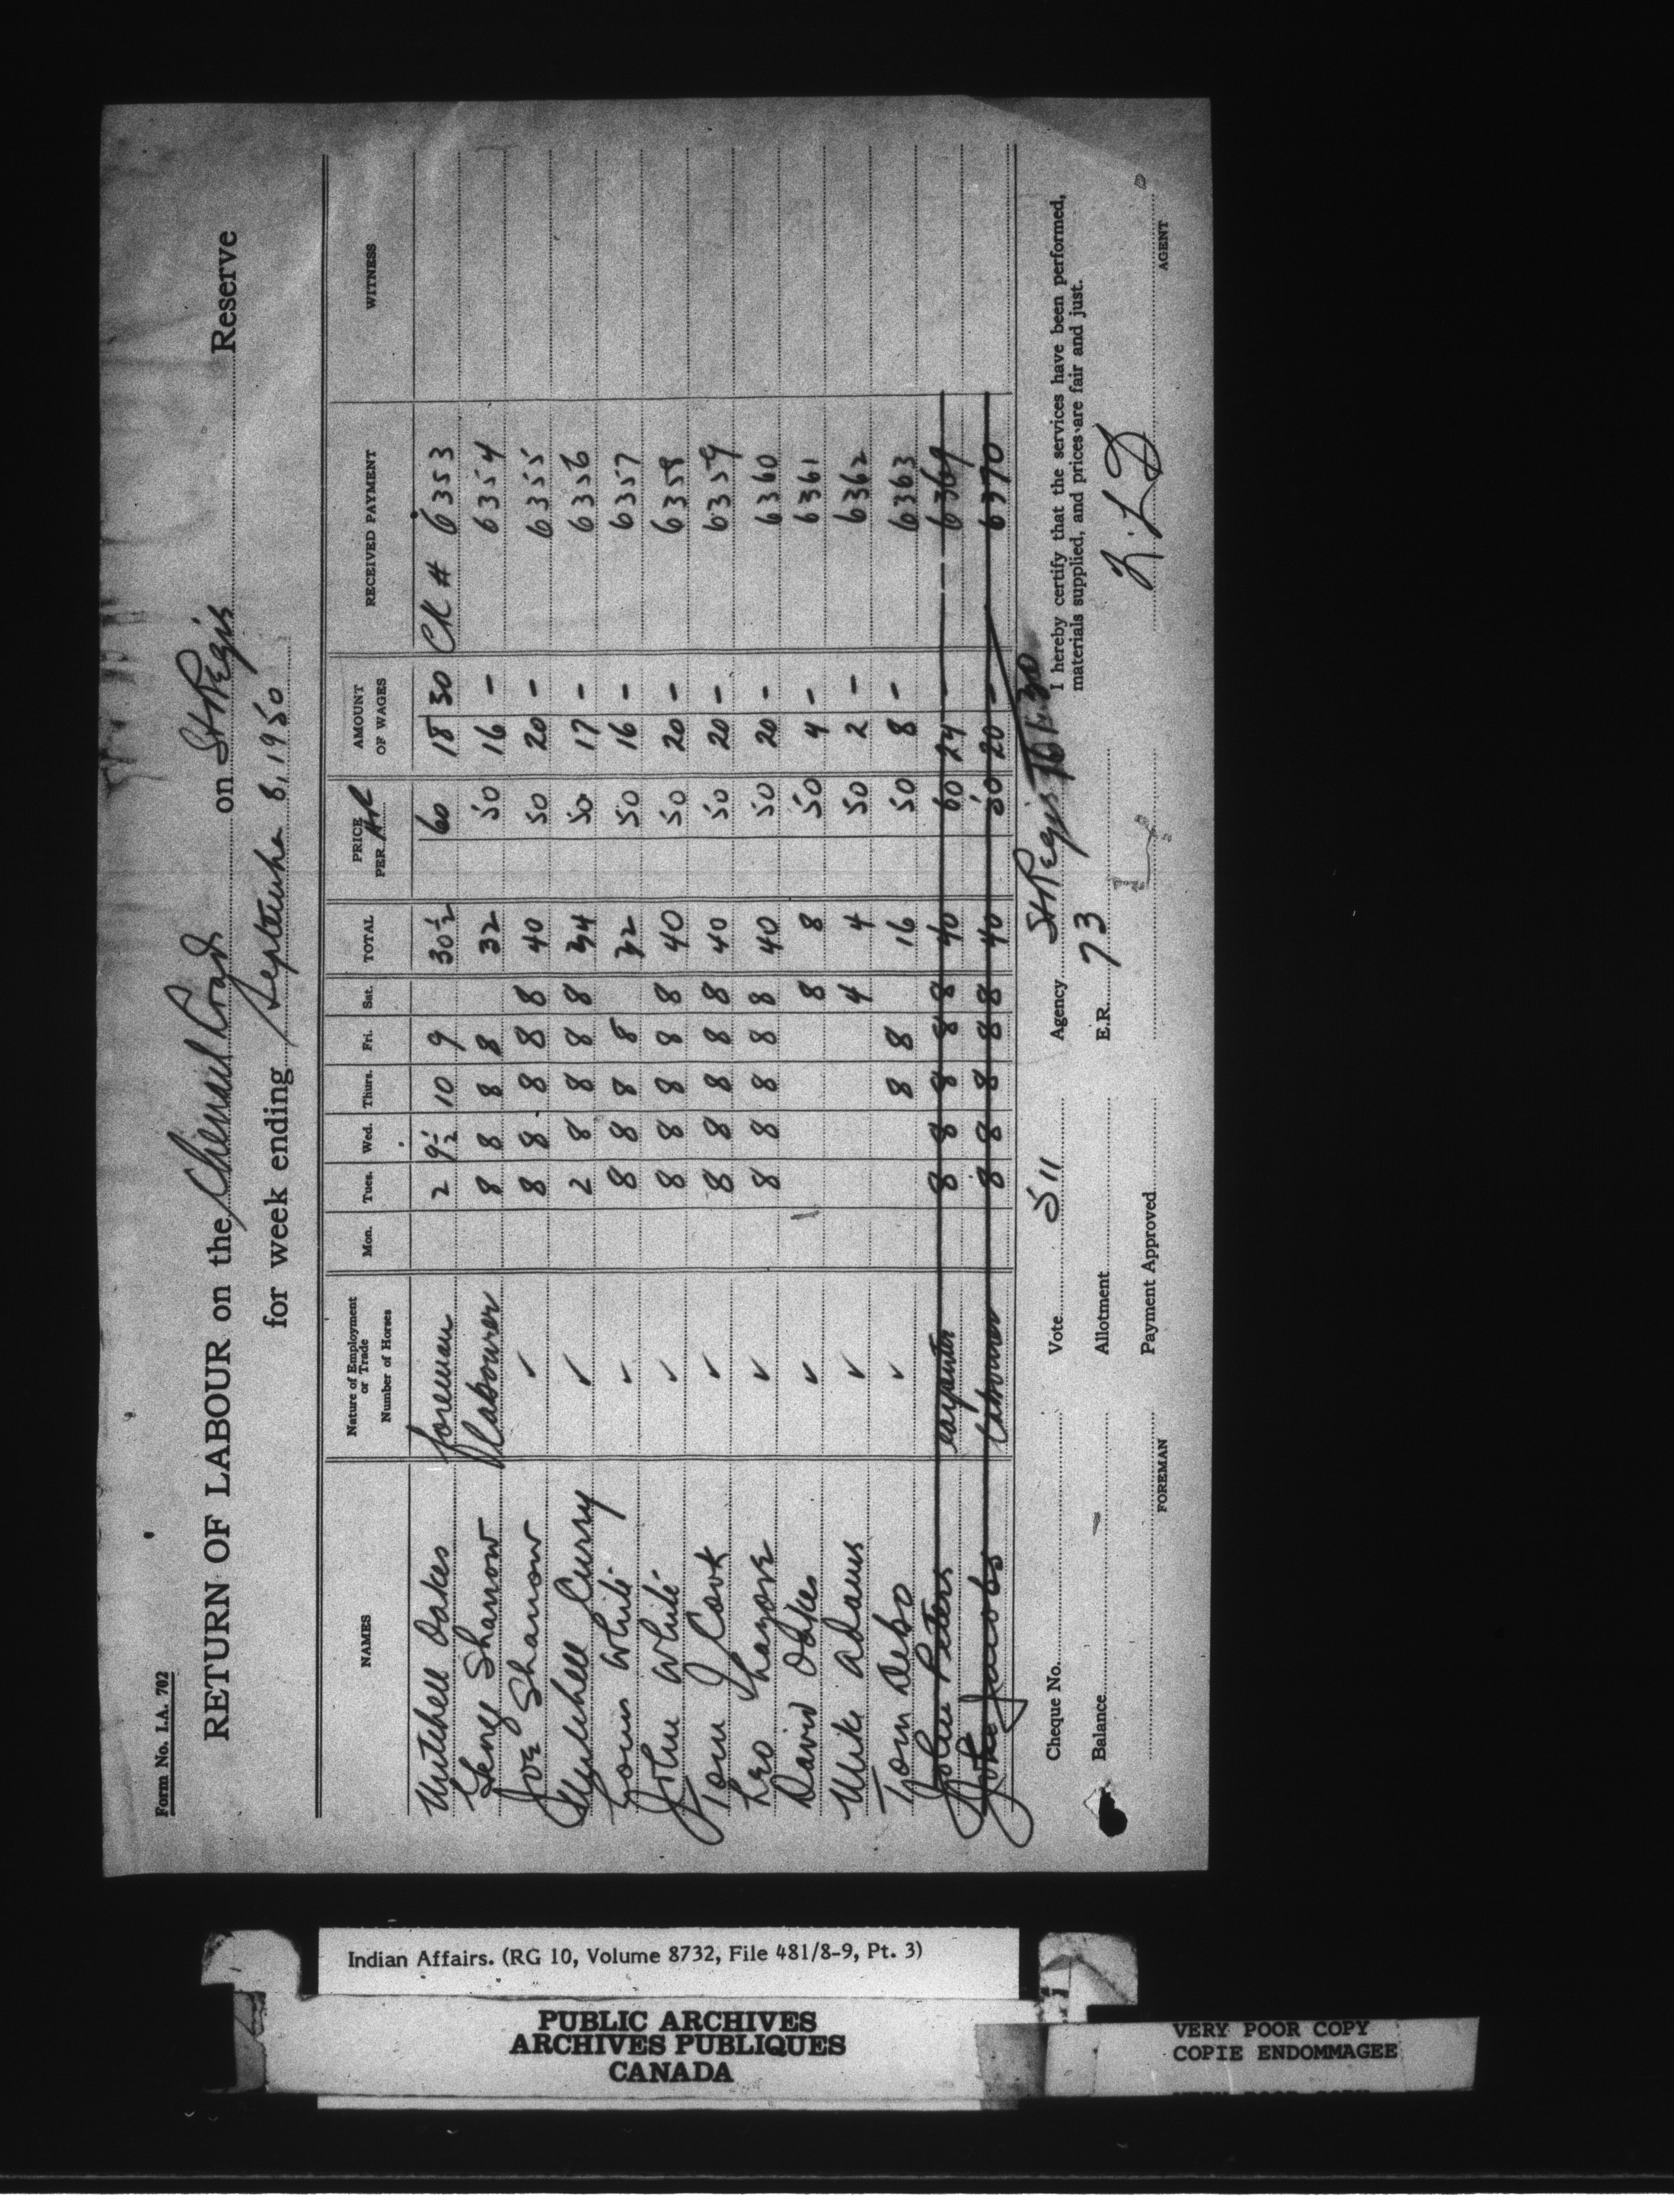 Form No. I.A. 702
RETURN OF LABOUR on the Chenail Road on St Regis Reserve
for week ending September 8, 1950
NAMES Nature of Employment or Trade Number of Horses Mon. Tues. Wed. Thurs. Fri. Sat. TOTAL PRICE PER HR AMOUNT OF WAGES RECEIVED PAYMENT WITNESS
Mitchell Oakes foreman 2 9½ 10 9 30½ 60 18 30 CK # 6353
Sharrow labourer 8 8 8 8 32 50 16 - 6354
Joe Sharrow ✓ 8 8 8 8 8 40 50 20 - 6355
Mitchell Curry ✓ 2 8 8 8 8 34 50 17 - 6356
Louis White ✓ 8 8 8 8 32 50 16 - 6357
John White ✓ 8 8 8 8 8 40 50 20 - 6358
Tom J Cook ✓ 8 8 8 8 8 40 50 20 - 6359
Leo ✓ 8 8 8 8 8 40 50 20 - 6360
David Oakes ✓ 8 8 50 4 - 6361
Mike Adams ✓ 4 4 50 2 - 6362
Tom Debo ✓ 8 8 16 50 8 - 6363
John Peters carpenter 8 8 8 8 8 40 60 24 - 6369
Jacobs labourer 8 8 8 8 8 40 50 20 - 6370
Cheque No. Vote 511 Agency St Regis 161.30
I hereby certify that the services have been performed,
materials supplied, and prices are fair and just.
Balance Allotment E.R. 73
Payment Approved
FOREMAN AGENT
Indian Affairs. (RG 10, Volume 8732, File 481/8-9, Pt. 3)
PUBLIC ARCHIVES
ARCHIVES PUBLIQUES
CANADA
VERY POOR COPY
COPIE ENDOMMAGEE